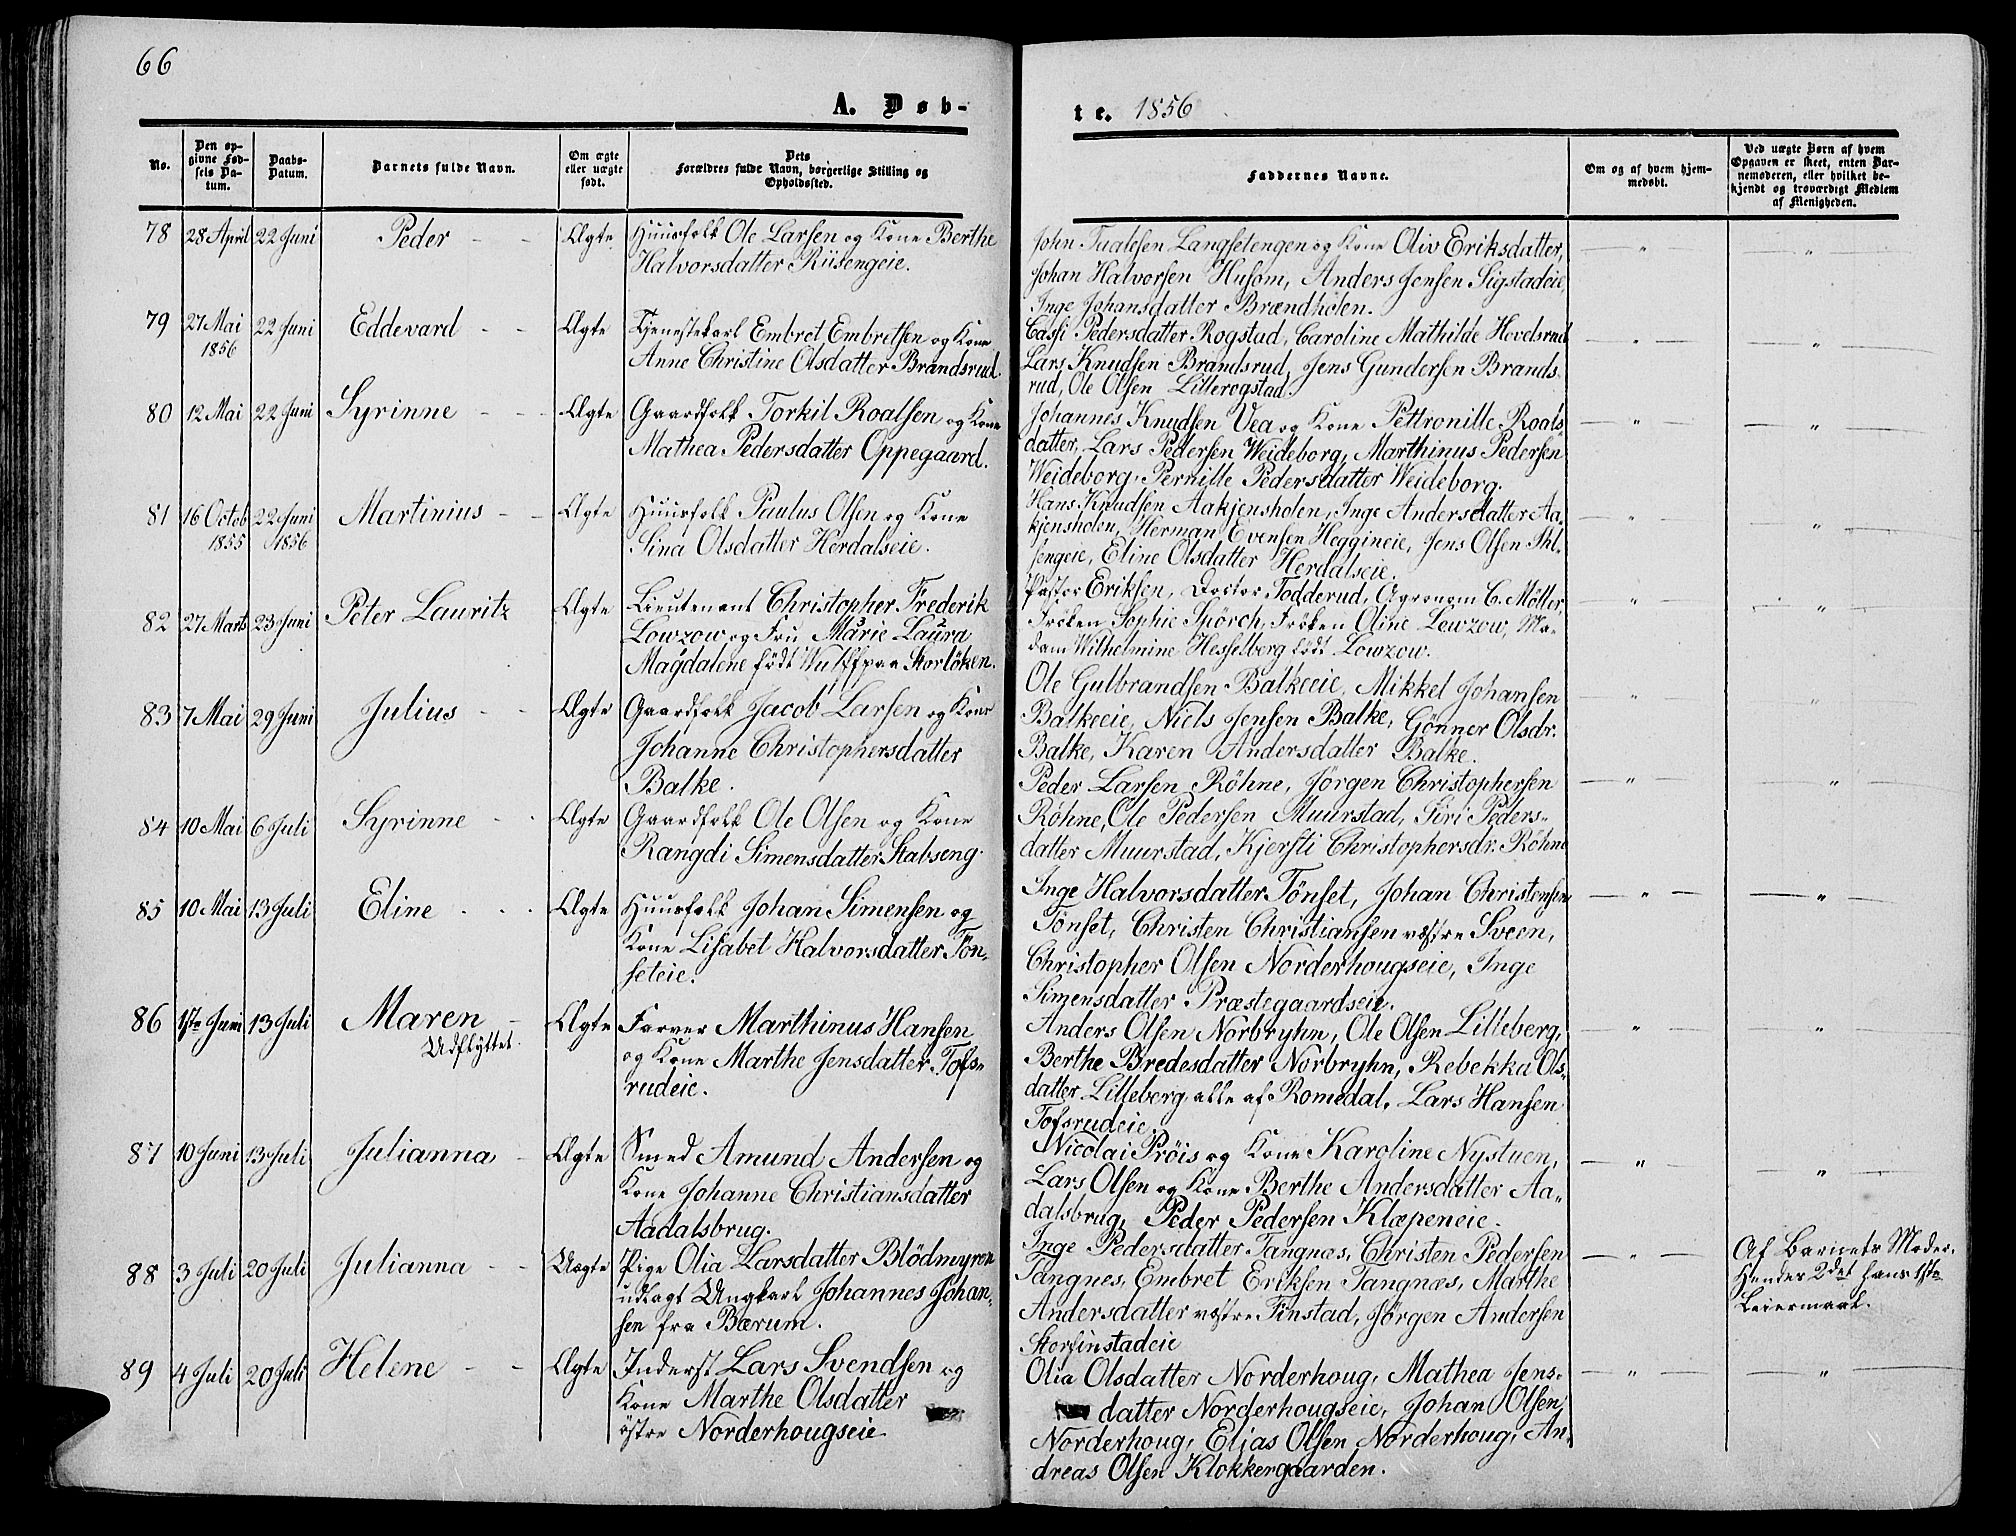 66
A. Døb-
te. 1856
No.
Den op-
givne Fød-
sels Da-
tum.
Daabs-
Datum.
Barnets fulde Navn.
Om ægte
eller uægte
født.
Dets
Forældres fulde Navn, borgerlige Stilling og
Opholdssted.
Faddernes Navne.
Om og af hvem hjem-
medøbt.
Ved uægte Børn af hvem
Opgaven er skeet, enten Bar-
nemoderen, eller hvilket be-
kjendt og troværdigt Medlem
af Menigheden.
78 28 April 22 Juni Peder - - Ægte Huusfolk Ole Larsen og Kone Berthe
Halvorsdatter Riisengeie.
John Langsetengen og Kone Oliv Eriksdatter,
Johan Halvorsen Husom, Anders Jensen Sigstadeie,
Inge Johansdatter Brændholen.
79 27 Mai 22 Juni Eddevard - - Ægte Tjenestekarl Embret Embretsen og Kone
1856
Anne Christine Olsdatter Brandsrud.
Cassi Pedersdatter Rogstad, Caroline Mathilde Hovelsrud
Lars Knudsen Brandsrud, Jens Gundersen Brands-
rud, Ole Olsen Lillerogstad.
80 12 Mai 22 Juni Syrinne - - Ægte Gaardfolk Torkil Roalsen og Kone
Mathea Pedersdatter Oppegaard.
Johannes Knudsen Vea og Kone Pettronille Roals-
datter, Lars Pedersen Weideborg, Marthinus Pedersen
Weideborg, Pernille Pedersdatter Weideborg.
81 16 Octob 22 Juni Martinius - - Ægte Huusfolk Paulus Olsen og Kone
1855 1856
Sina Olsdatter Herdalseie.
Hans Knudsen Aakjensholen, Inge Andersdatter Aa-
kjensholen, Herman Evensen Heggineie, Jens Olsen
sengeie, Eline Olsdatter Herdalseie.
82 27 Marts 23 Juni Peter Lauritz Ægte Lieutenant Christopher Frederik
Lowzow og Fru Marie Laura
Magdalene født Wulff paa Storløken.
Pastor Eriksen, Doctor Todderud, Agronom C. Møller,
Frøken Sophie Spörch, Frøken Oline Lowzow, Ma-
dam Wilhelmine Hesselberg født Lowzow.
83 7 Mai 29 Juni Julius - - Ægte Gaardfolk Jacob Larsen og Kone
Johanne Christophersdatter
Balke.
Ole Gulbrandsen Balkeeie, Mikkel Johansen
Balkeeie, Niels Jensen Balke, Gønner Olsdr.
Balke, Karen Andersdatter Balke.
84 10 Mai 6 Juli Syrinne - - Ægte Gaardfolk Ole Olsen og Kone
Rangdi Simensdatter Stabseng.
Peder Larsen Röhne, Jørgen Christophersen
Röhne, Ole Pedersen Muurstad, Siri Peders-
datter Muurstad, Kjersti Christophersdr. Röhne
85 10 Mai 13 Juli Eline - - Ægte Huusfolk Johan Simensen og
Kone Lisabet Halvorsdatter Tøn-
seteie.
Inge Halvorsdatter Tønset, Johan Christensen
Tønset, Christen Christiansen vestre Sveen,
Christopher Olsen Norderhougseie, Inge
Simensdatter Præstegaardseie.
86 1ste Juni 13 Juli Maren - Ægte Farver Marthinus Hansen
Udflyttet.
og Kone Marthe Jensdatter Tofs-
rudeie.
Anders Olsen Norbryhn, Ole Olsen Lilleberg,
Berthe Bredesdatter Norbryhn, Rebekka Ols-
datter Lilleberg, alle af Romedal, Lars Hansen
Tofsrudeie.
87 10 Juni 13 Juli Julianna - Ægte Smed Amund Andersen og
Kone Johanne Christiansdatter
Aadalsbrug.
Nicolai Prøis og Kone Karoline Nystuen,
Lars Olsen og Kone Berthe Andersdatter Aa-
dalsbrug, Peder Pedersen Klæpeneie.
88 3 Juli 20 Juli Julianna - - Uægte Pige Olia Larsdatter Blödmyren
udlagt Ungkarl Johannes Johan-
sen fra Bærum.
Inge Pedersdatter Tangnæs, Christen Pedersen
Tangnes, Embret Eriksen Tangnæs, Marthe
Andersdatter vestre Finstad, Jørgen Andersen
Storfinstadeie
Af Barnets Moder.
Hendes 2det hans 1ste
Leiermaal.
89 4 Juli 20 Juli Helene - - Ægte Inderst Lars Svendsen og
Kone Marthe Olsdatter
østre Norderhougseie
Olia Olsdatter Norderhoug, Mathea Jens-
datter Norderhougseie, Johan Olsen
Norderhoug, Elias Olsen Norderhoug, An-
dreas Olsen Klokkergaarden.